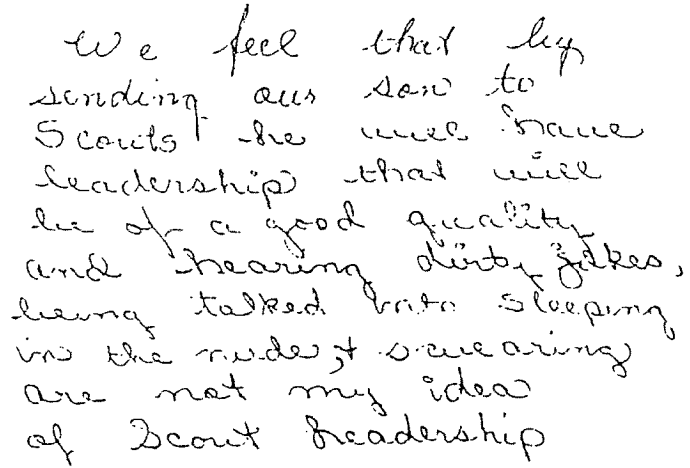 We feel that by
sending our son to
Scouts he will have
leadership that will
be of a good quality
and hearing dirty jokes,
being talked into sleeping
in the nude, + swearing
are not my idea
of Scout Leadership